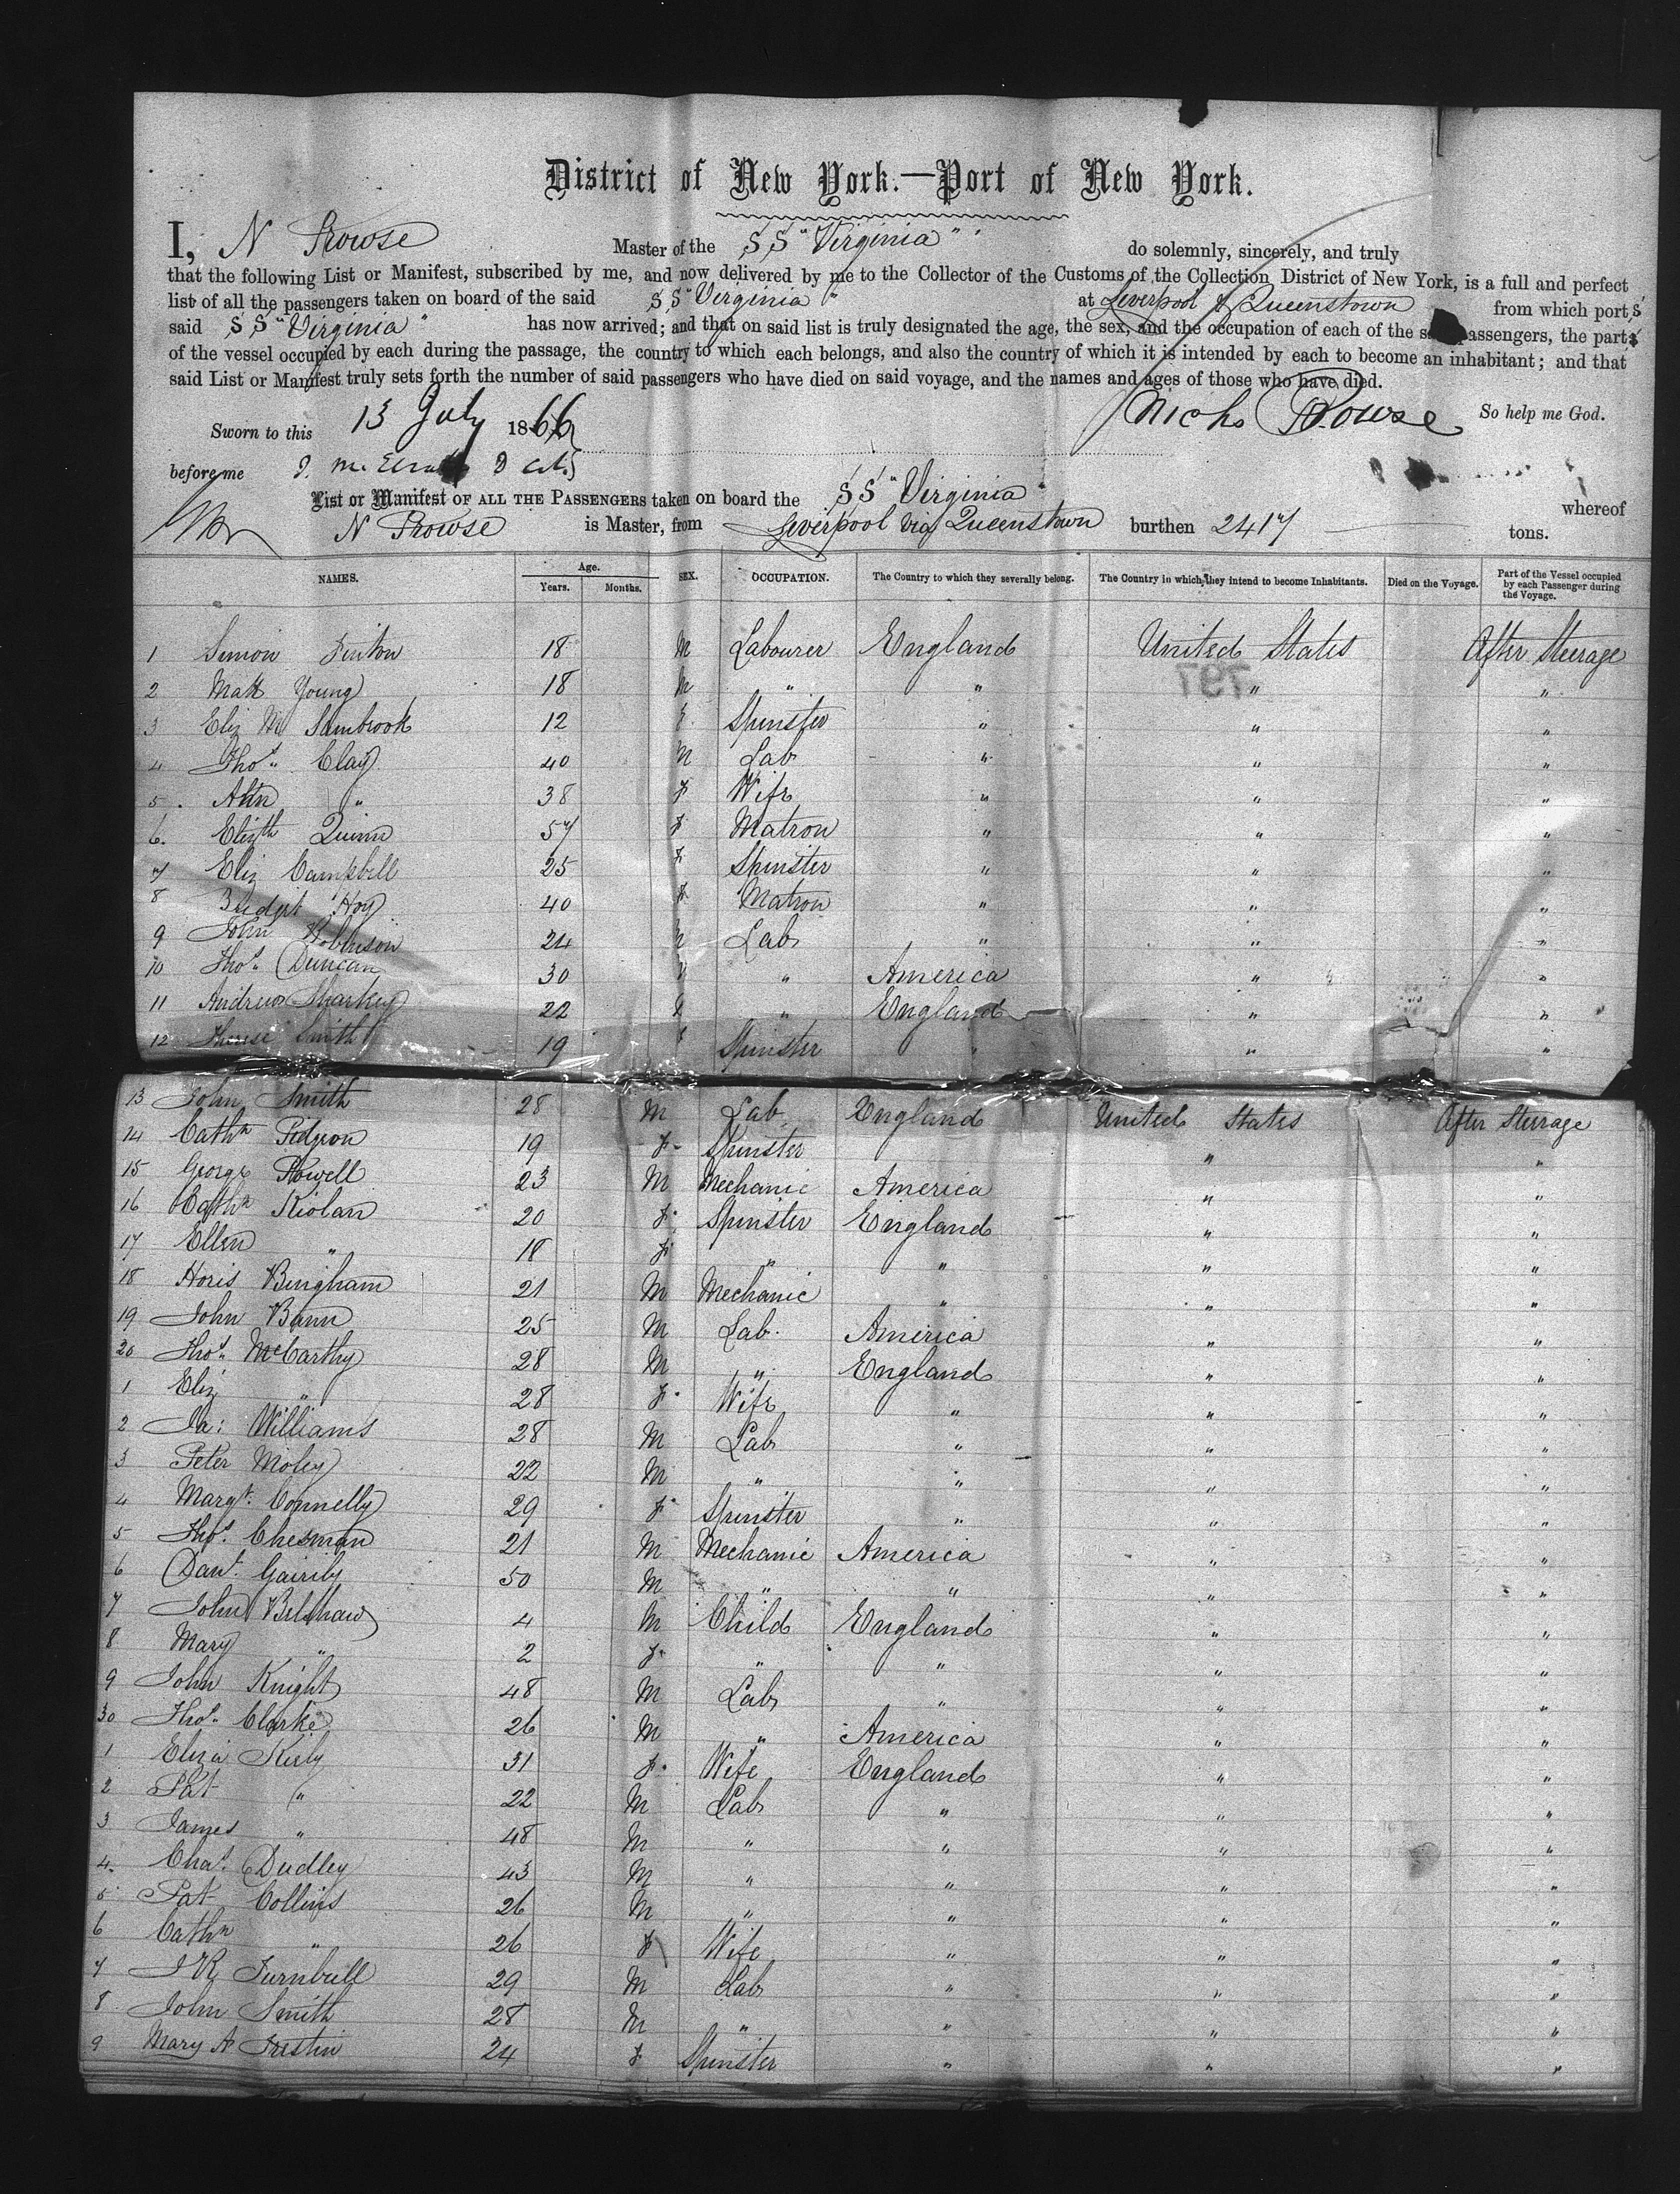 District of New York.—Port of New York.
I, N Prowse Master of the SS "Virginia" do solemnly, sincerely, and truly
that the following List or Manifest, subscribed by me, and now delivered by me to the Collector of the Customs of the Collection District of New York, is a full and perfect
list of all the passengers taken on board of the said SS "Virginia" at Liverpool & Queenstown from which port s
said SS "Virginia" has now arrived; and that on said list is truly designated the age, the sex, and the occupation of each of the passengers, the part s
of the vessel occupied by each during the passage, the country to which each belongs, and also the country of which it is intended by each to become an inhabitant; and that
said List or Manifest truly sets forth the number of said passengers who have died on said voyage, and the names and ages of those who have died.
Sworn to this 13 July 1866 Nichs Prowse So help me God.
before me
List or Manifest OF ALL THE PASSENGERS taken on board the SS "Virginia" whereof
N Prowse is Master, from Liverpool via Queenstown burthen 2417 tons.
NAMES. Age. Years. Months. SEX. OCCUPATION. The Country to which they severally belong. The Country in which they intend to become Inhabitants. Died on the Voyage. Part of the Vessel occupied by each Passenger during the Voyage.
1 Simon Finton 18 M Labourer England United States After Steerage
797
2 Matt Young 18 M " " " "
3 Eliz M Sambrook 12 F Spinster " " "
4 Thos. Clay 40 M Lab " " "
5. Ann " 38 F Wife " " "
6. Elizth Quinn 57 F Matron " " "
7 Eliz Campbell 25 F Spinster " " "
8 Bridgt Hoy 40 F Matron " " "
9 John Robinson 24 M Lab " " "
10 Thos. Duncan 30 M " America " "
11 Andrew Sharkey 22 " England " "
12 Smith 19 F Spinster " " "
13 John Smith 28 M Lab England United States After Sterage
14 Cathn Pidgeon 19 F Spinster " "
15 George Powell 23 M Mechanic America " "
16 Cathn Kiolan 20 F Spinster England " "
17 Ellen " 18 F " " " "
18 Horis Bingham 21 M Mechanic " " "
19 John Bann 25 M Lab. America " "
20 Thos. McCarthy 28 M " England " "
1 Eliz " 28 F Wife " " "
2 Ja: Williams 28 M Lab " " "
3 Peter Moley 22 M " " " "
4 Margt. Connelly 29 F Spinster " " "
5 Thos. Chesman 21 M Mechanic America " "
6 Danl. 50 M " " " "
7 John Belshaw 4 M Child England " "
8 Mary " 2 F " " " "
9 John Knight 48 M Lab " " "
30 Thos. Clarke 26 M " America " "
1 Eliza Kiely 31 F Wife England " "
2 Pat " 22 M Lab " " "
3 James " 48 M " " " "
4. Chas. Dudley 43 M " " " "
5 Pat Collins 26 M " " " "
6 Cathn " 26 F Wife " " "
7 J R Turnbull 29 M Lab " " "
8 John Smith 28 M " " " "
9 Mary A 24 F Spinster " " "